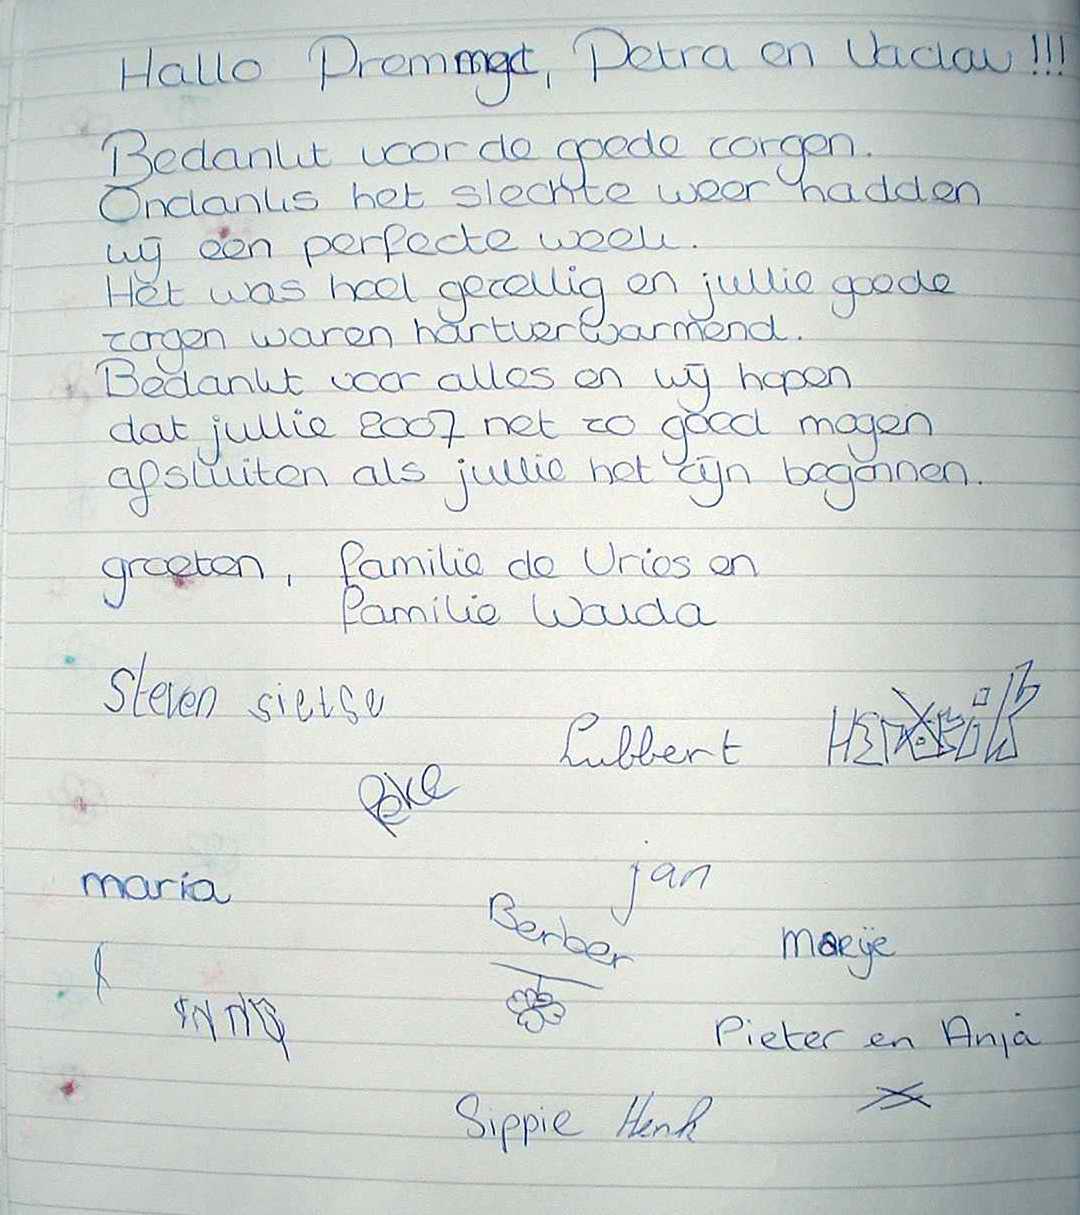 Hallo Premmgt, Petra en Vaclav !!!
Bedankt voor de goede zorgen.
Ondanks het slechte weer hadden
wij een perfecte week.
Het was heel gezellig en jullie goede
zorgen waren hartverwarmend.
Bedankt voor alles en wij hopen
dat jullie 2007 net zo goed mogen
afsluiten als jullie het zijn begonnen.
groeten, familie de Vries en
familie Wauda
Steven sietse
Lubbert
Poke
jan
maria
Berber
Marije
Pieter en Anja
Sippie Henk